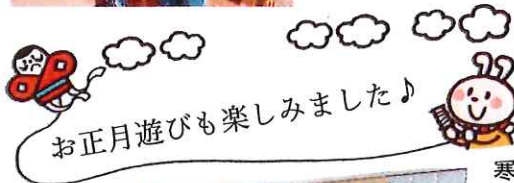 お正月遊びも楽しみました♪
寒